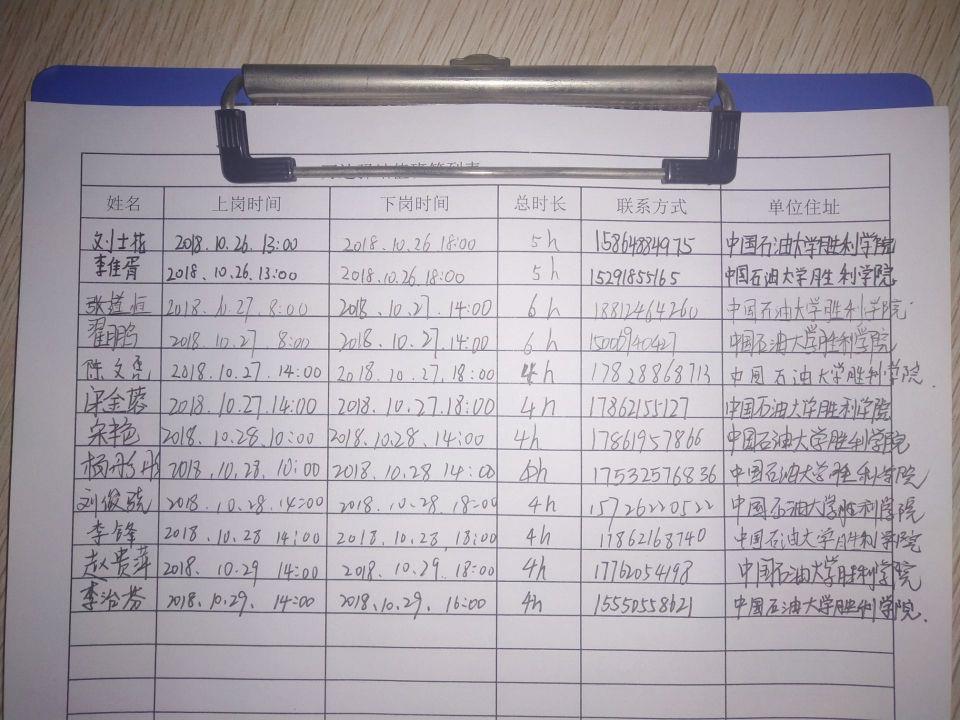 值班签到表
姓名 上岗时间 下岗时间 总时长 联系方式 单位住址
刘士花 2018.10.26.13:00 2018.10.26 18:00 5h 15864884975 中国石油大学胜利学院
李佳胥 2018.10.26.13:00 2018.10.26.18:00 5h 15291855165 中国石油大学胜利学院
张道恒 2018.10.27.8:00 2018.10.27.14:00 6h 18812464260 中国石油大学胜利学院
翟鹏 2018.10.27.8:00 2018.10.27.14:00 6h 15009940427 中国石油大学胜利学院
陈文 2018.10.27.14:00 2018.10.27.18:00 4h 17828868713 中国石油大学胜利学院.
宋金蓉 2018.10.27.14:00 2018.10.27.18:00 4h 17862155127 中国石油大学胜利学院
宋艳 2018.10.28.10:00 2018.10.28.14:00 4h 17861957866 中国石油大学胜利学院
杨彤彤 2018.10.28.10:00 2018.10.28 14:00 4h 17532576836 中国石油大学胜利学院
刘俊骁 2018.10.28.14:00 2018.10.28.18:00 4h 15726220522 中国石油大学胜利学院
李锋 2018.10.28 14:00 2018.10.28 18:00 4h 17862168740 中国石油大学胜利学院
赵贵萍 2018.10.29 14:00 2018.10.29.18:00 4h 17762054198 中国石油大学胜利学院
李治芬 2018.10.29. 14:00 2018.10.29.16:00 4h 15550558621 中国石油大学胜利学院.